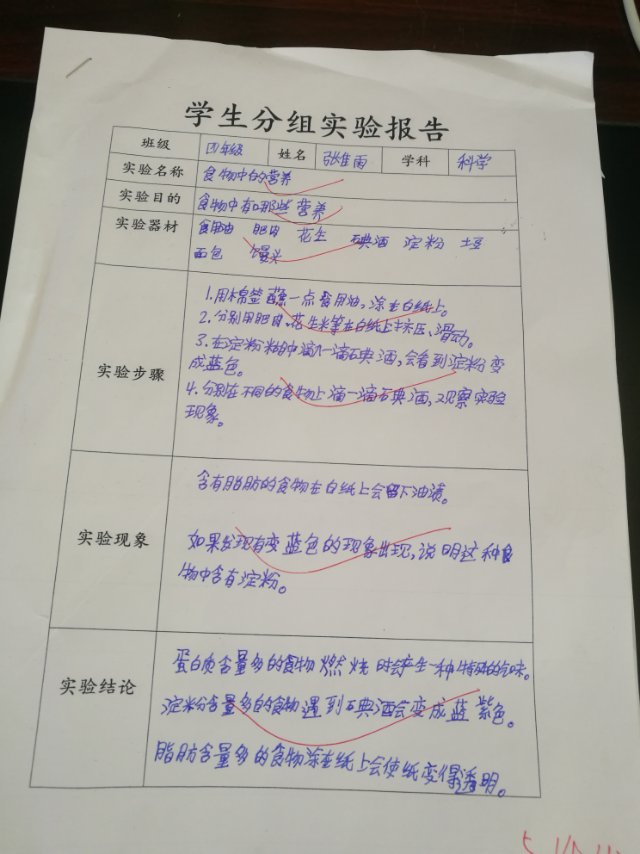 学生分组实验报告
班级 四年级 姓名 张佳雨 学科 科学
实验名称 食物中的营养
实验目的 食物中有哪些营养
实验器材 食用油 肥肉 花生 碘酒 淀粉 土豆
面包 馒头
实验步骤
1.用棉签蘸一点食用油,涂在白纸上。
2.分别用肥肉、花生米等在白纸上挤压、滑动。
3.在淀粉糊中滴一滴碘酒,会看到淀粉变
成蓝色。
4.分别在不同的食物上滴一滴碘酒,观察实验
现象。
实验现象
含有脂肪的食物在白纸上会留下油渍。
如果发现有变蓝色的现象出现,说明这种食
物中含有淀粉。
实验结论
蛋白质含量多的食物燃烧时会产生一种特殊的气味。
淀粉含量多的食物遇到碘酒会变成蓝紫色。
脂肪含量多的食物涂在纸上会使纸变得透明。